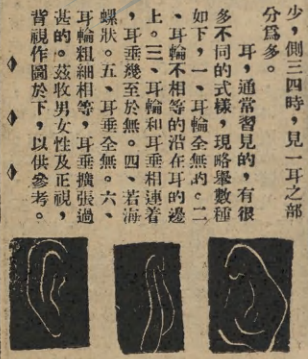 少，側三四時，見一耳之部
分爲多。
耳，通常習見的，有很
多不同的式樣，現略舉數種
如下，一、耳輪全無的。二
、耳輪不相等的沿在耳的邊
上。三、耳輪和耳垂相連着
，耳垂幾至於無。四、若海
螺狀。五、耳垂全無。六、
耳輪粗細相等，耳垂擴張過
甚的。茲收男女性及正視，
背視作圖於下，以供參考。